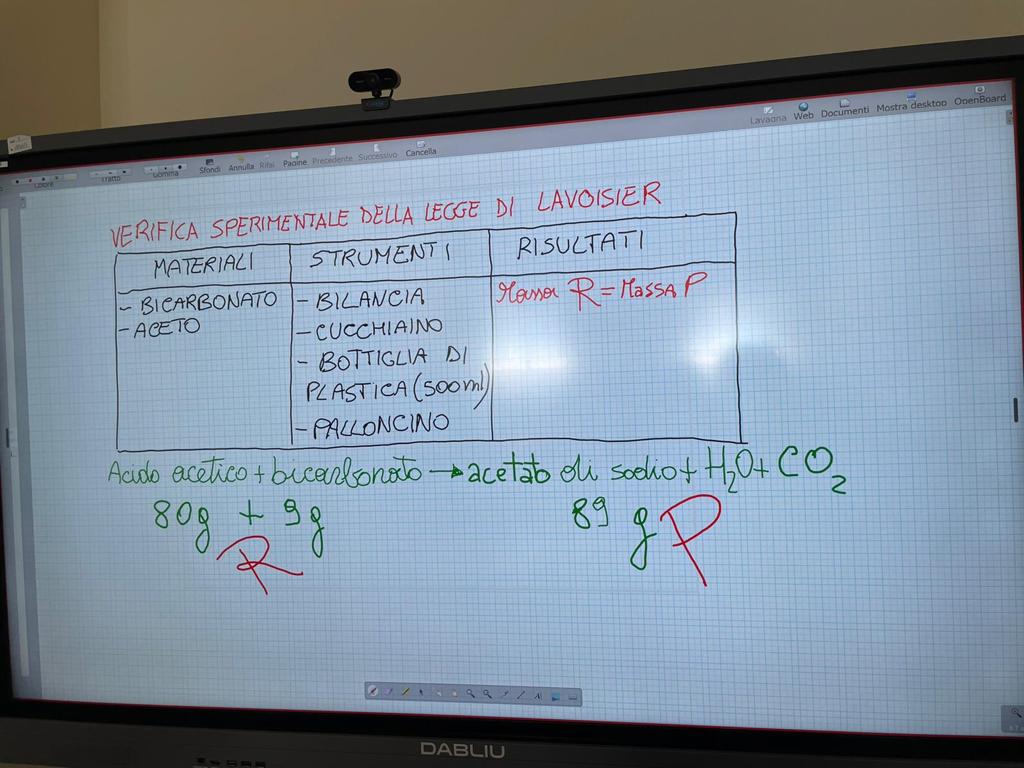 Lavagna Web Documenti Mostra desktop OpenBoard
Colore Tratto Gomma Sfondi Annulla Rifai Pagine Precedente Successivo Cancella
VERIFICA SPERIMENTALE DELLA LEGGE DI LAVOISIER
MATERIALI STRUMENTI RISULTATI
- BICARBONATO
- ACETO
- BILANCIA
- CUCCHIAINO
- BOTTIGLIA DI
PLASTICA (500ml)
- PALLONCINO
Massa R = MASSA P
Acido acetico + bicarbonato → acetato di sodio + H₂O + CO₂
80g + 9g 89 g
R P
DABLIU